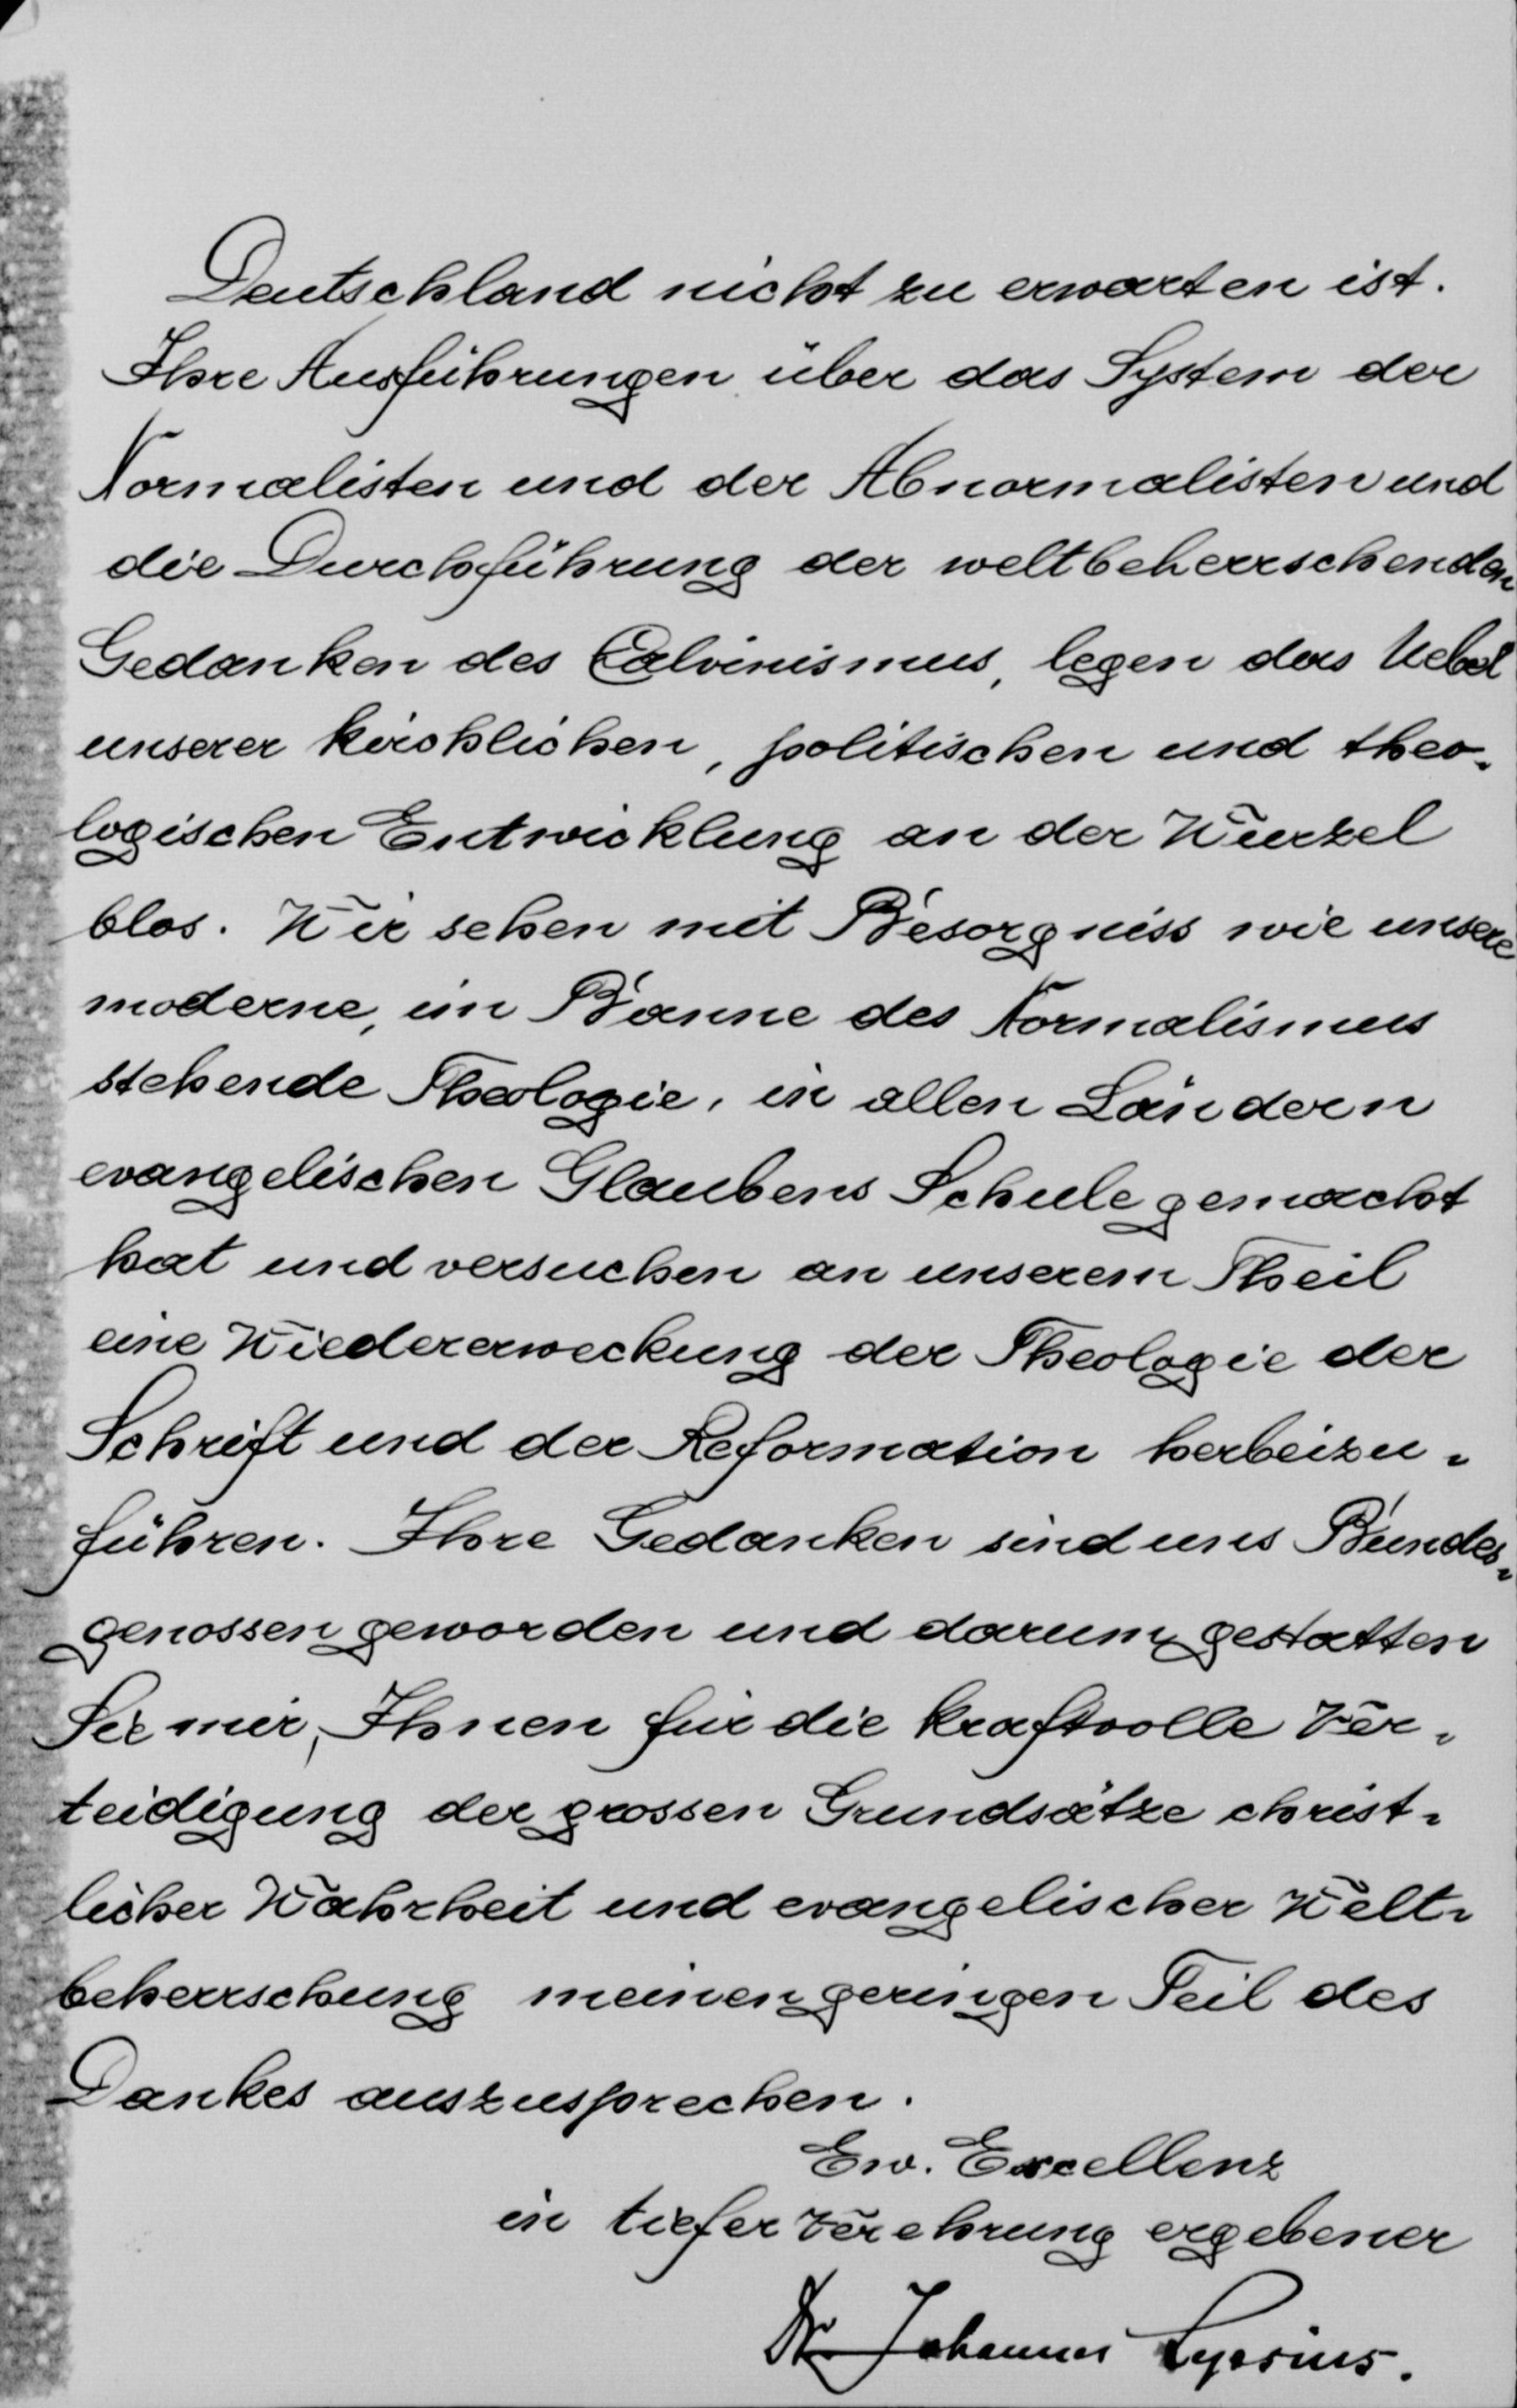 Deutschland nicht zu erwarten ist.
Ihre Ausführungen über das System der
Normalisten und der Abnormalisten und
die Durchführung der weltbeherrschenden
Gedanken des Calvinismus, legen das Uebel
unserer kirchlichen, politischen und theo-
logischen Entwicklung an der Wurzel
blos. Wir sehen mit Besorgniss wie unsere
moderne, im Banne des Normalismus
stehende Theologie, in allen Ländern
evangelischen Glaubens Schule gemacht
hat und versuchen an unserem Theil
eine Wiedererweckung der Theologie der
Schrift und der Reformation herbeizu-
führen. Ihre Gedanken sind uns Bundes-
genossen geworden und darum gestatten
Sie mir, Ihnen für die kraftvolle Ver-
teidigung der grossen Grundsätze christ-
licher Wahrheit und evangelischer Welt-
beherrschung meinen geringen Teil des
Dankes auszusprechen.
Ew. Excellenz
in tiefer Verehrung ergebener
Dr. Johannes Lepsius.